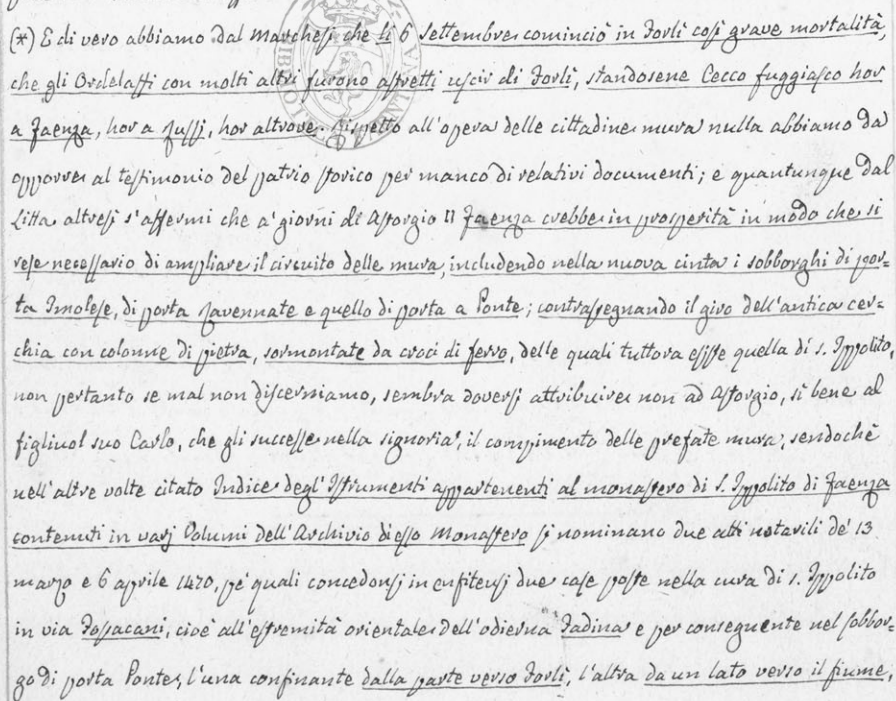 (*) E di vero abbiamo dal Marchesi che li 6 Settembre cominciò in Forlì così grave mortalità,
che gli Ordelaffi con molti altri furono astretti uscir di Forlì, standosene Cecco fuggiasco hor
a Faenza, hor a Russi, hor altrove. Rispetto all'opera delle cittadine mura nulla abbiamo da
opporre al testimonio del patrio storico per manco di relativi documenti; e quantunque dal
Litta altresì s'affermi che a' giorni di Astorgio II Faenza crebbe in prosperità in modo che si
rese necessario di ampliare il circuito delle mura, includendo nella nuova cinta i sobborghi di por-
ta Imolese, di porta Ravennate e quello di porta a Ponte; contrassegnando il giro dell'antica cer-
chia con colonne di pietra, sormontate da croci di ferro, delle quali tuttora esiste quella di s. Ippolito,
non pertanto se mal non discerniamo, sembra doversi attribuire non ad Astorgio, sì bene al
figliuol suo Carlo, che gli successe nella signoria, il compimento delle prefate mura, sendochè
nell'altre volte citato Indice degl'Istrumenti appartenenti al monastero di S. Ippolito di Faenza
contenuti in varj Volumi dell'Archivio di esso Monastero si nominano due atti notarili de' 13
marzo e 6 aprile 1470, pe' quali concedonsi in enfiteusi due case poste nella cura di s. Ippolito
in via Fossacani, cioè all'estremità orientale dell'odierna Fadina e per conseguente nel sobbor-
go di porta Ponte, l'una confinante dalla parte verso Forlì, l'altra da un lato verso il fiume,